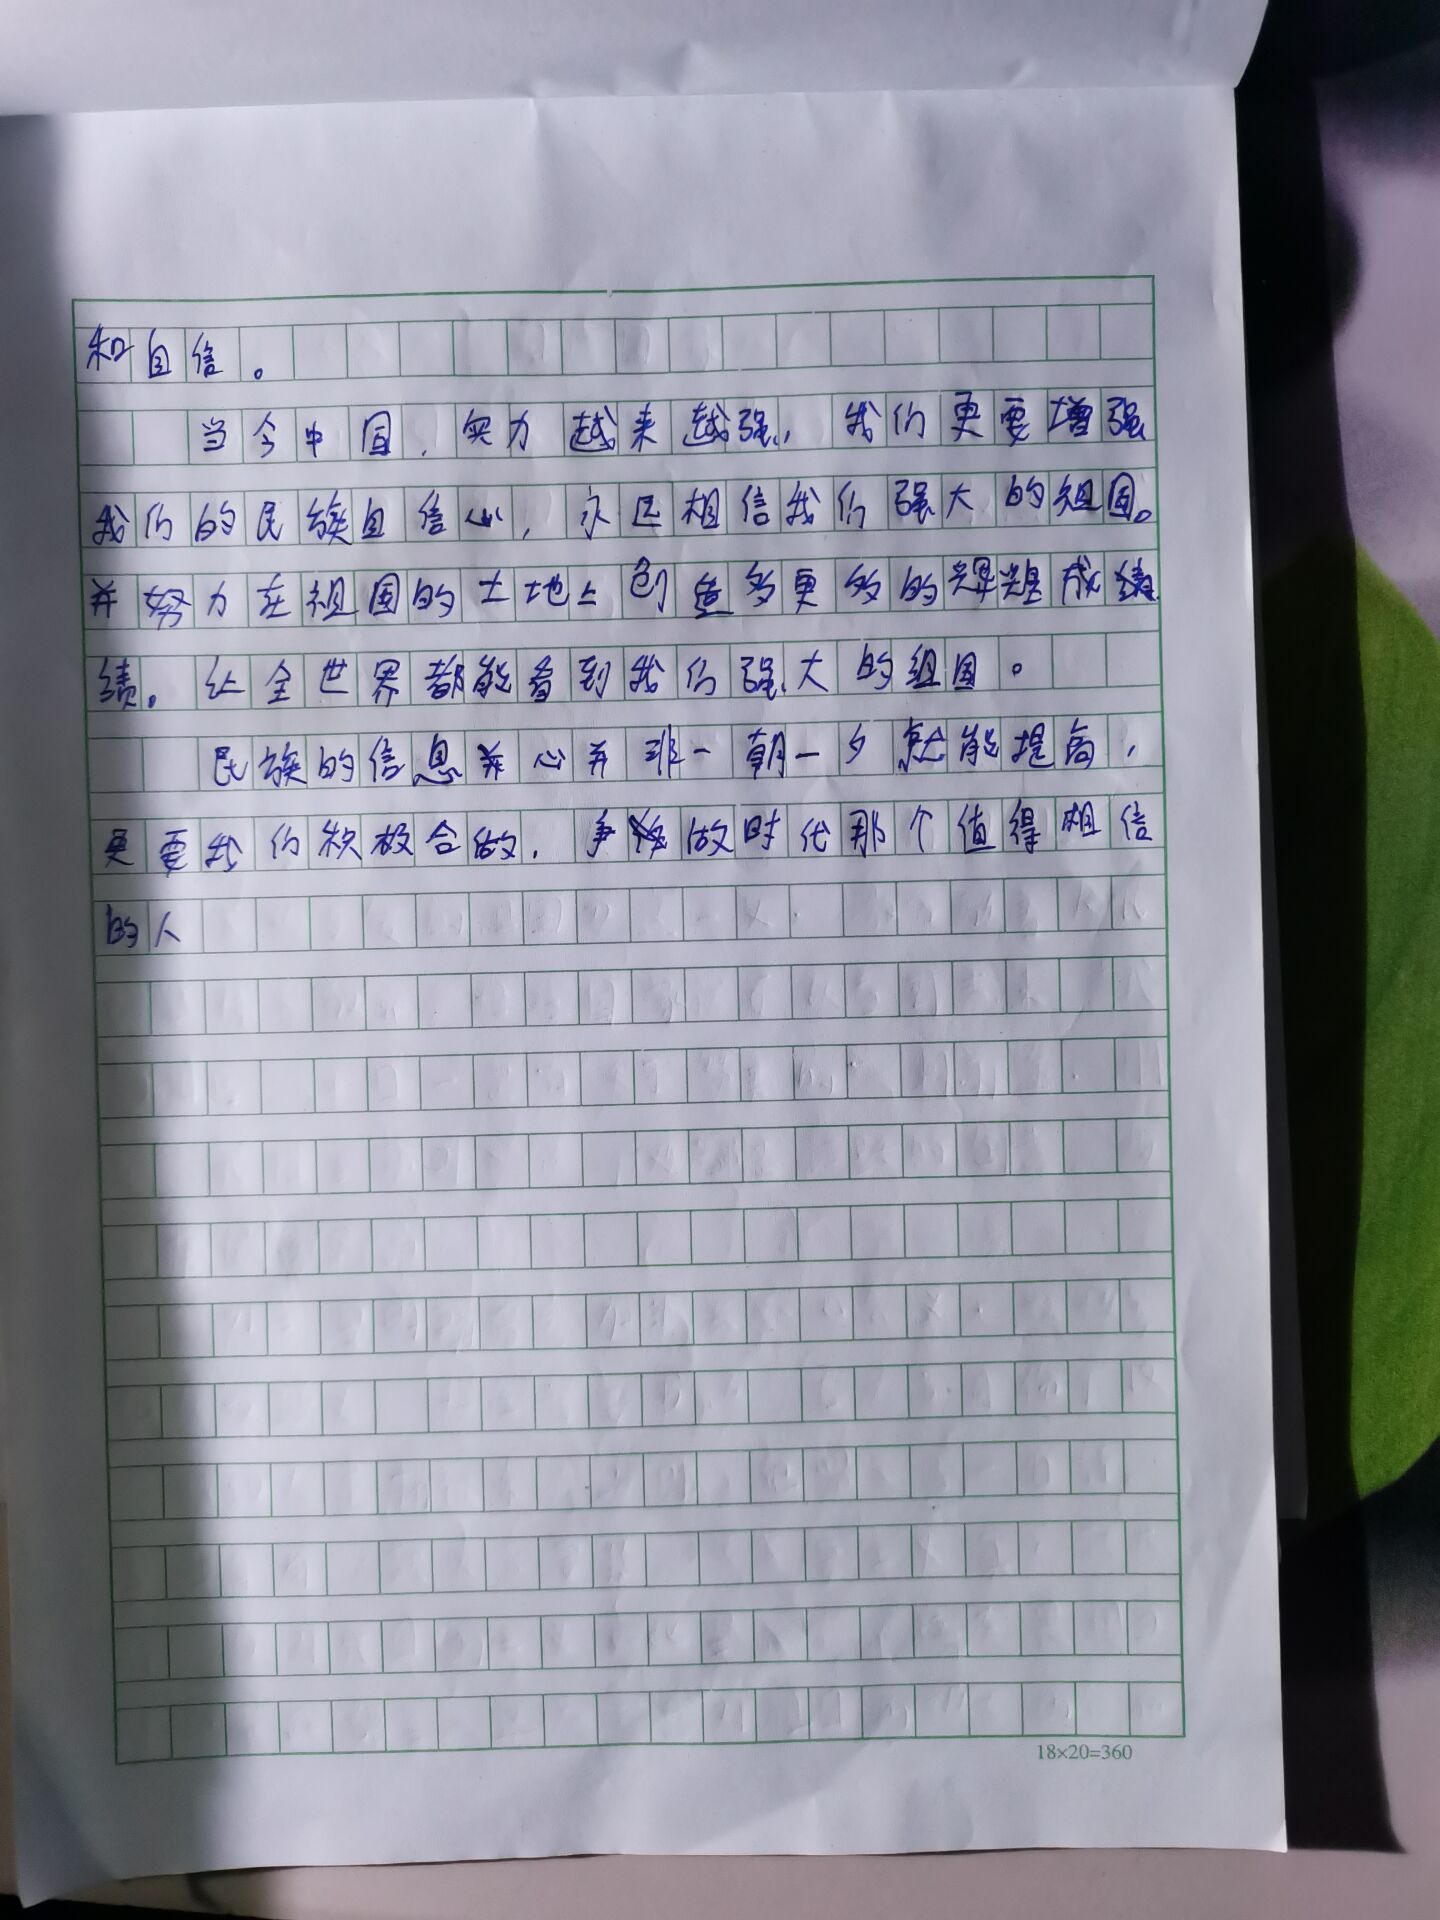 和自信。
当今中国，实力越来越强，我们更要增强
我们的民族自信心，永远相信我们强大的祖国。
并努力在祖国的土地上创造多更多的辉煌成绩
绩。让全世界都能看到我们强大的祖国。
民族的信息并心并非一朝一夕就能提高，
更要我们积极合做．争做时代那个值得相信
的人
18×20=360